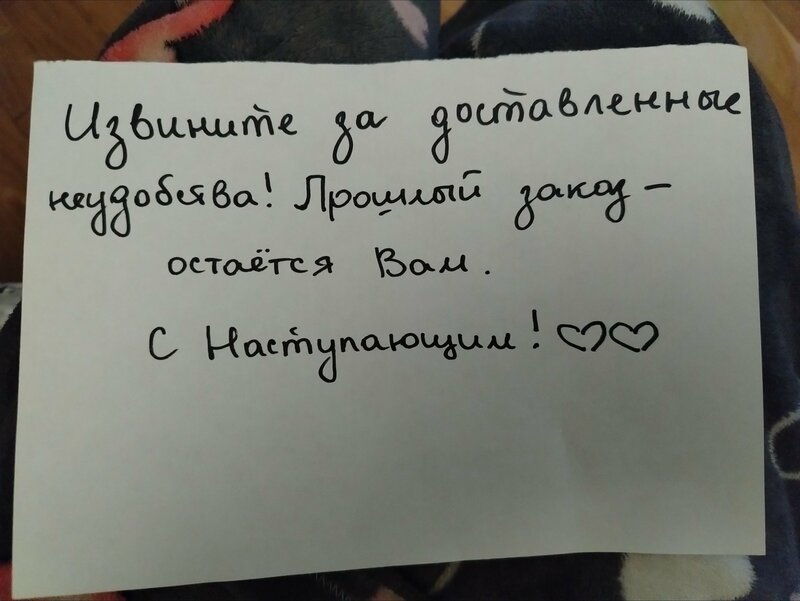 Извините за доставленные
неудобства! Прошлый заказ –
остаётся Вам.
С Наступающим! ♡♡